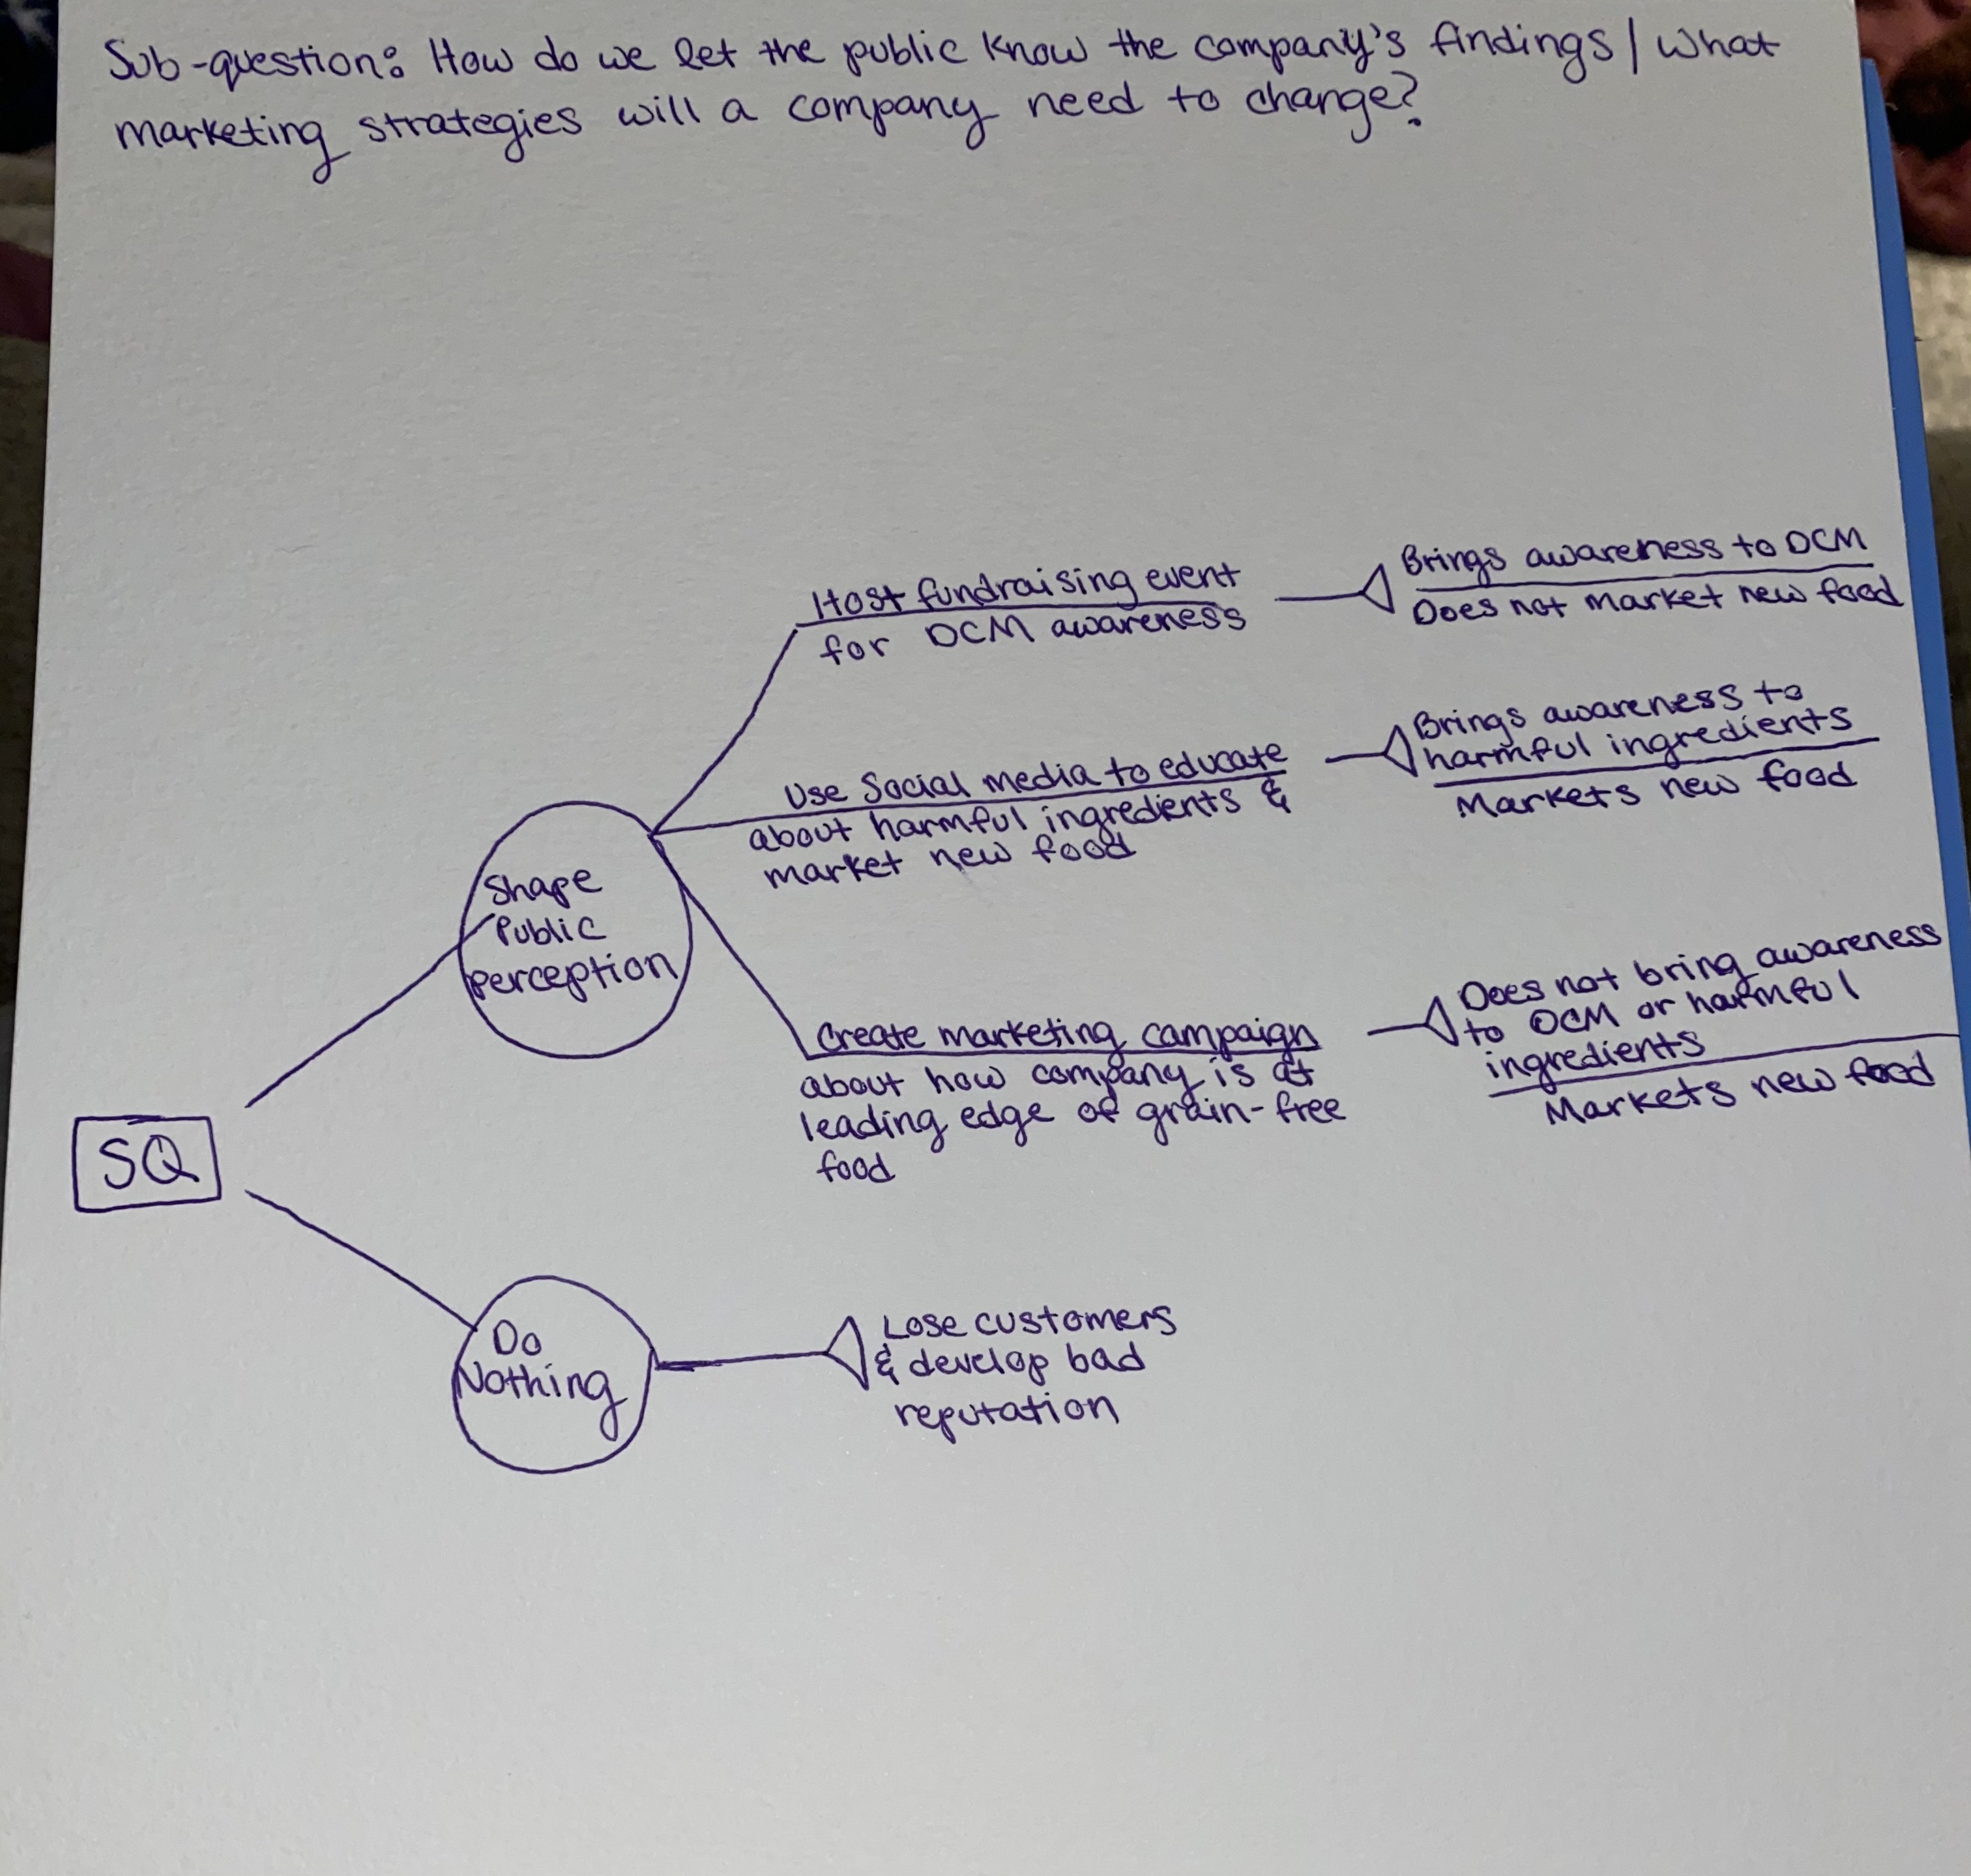 Sub-question: How do we let the public know the company's findings / what
marketing strategies will a company need to change?
Host fundraising event
for DCM awareness
Brings awareness to DCM
Does not market new food
Use Social media to educate
about harmful ingredients &
market new food
Brings awareness to
harmful ingredients
Markets new food
Shape
Public
perception
Create marketing campaign
about how company is at
leading edge of grain-free
food
Does not bring awareness
to DCM or harmful
ingredients
Markets new food
SQ
Do
Nothing
Lose customers
& develop bad
reputation